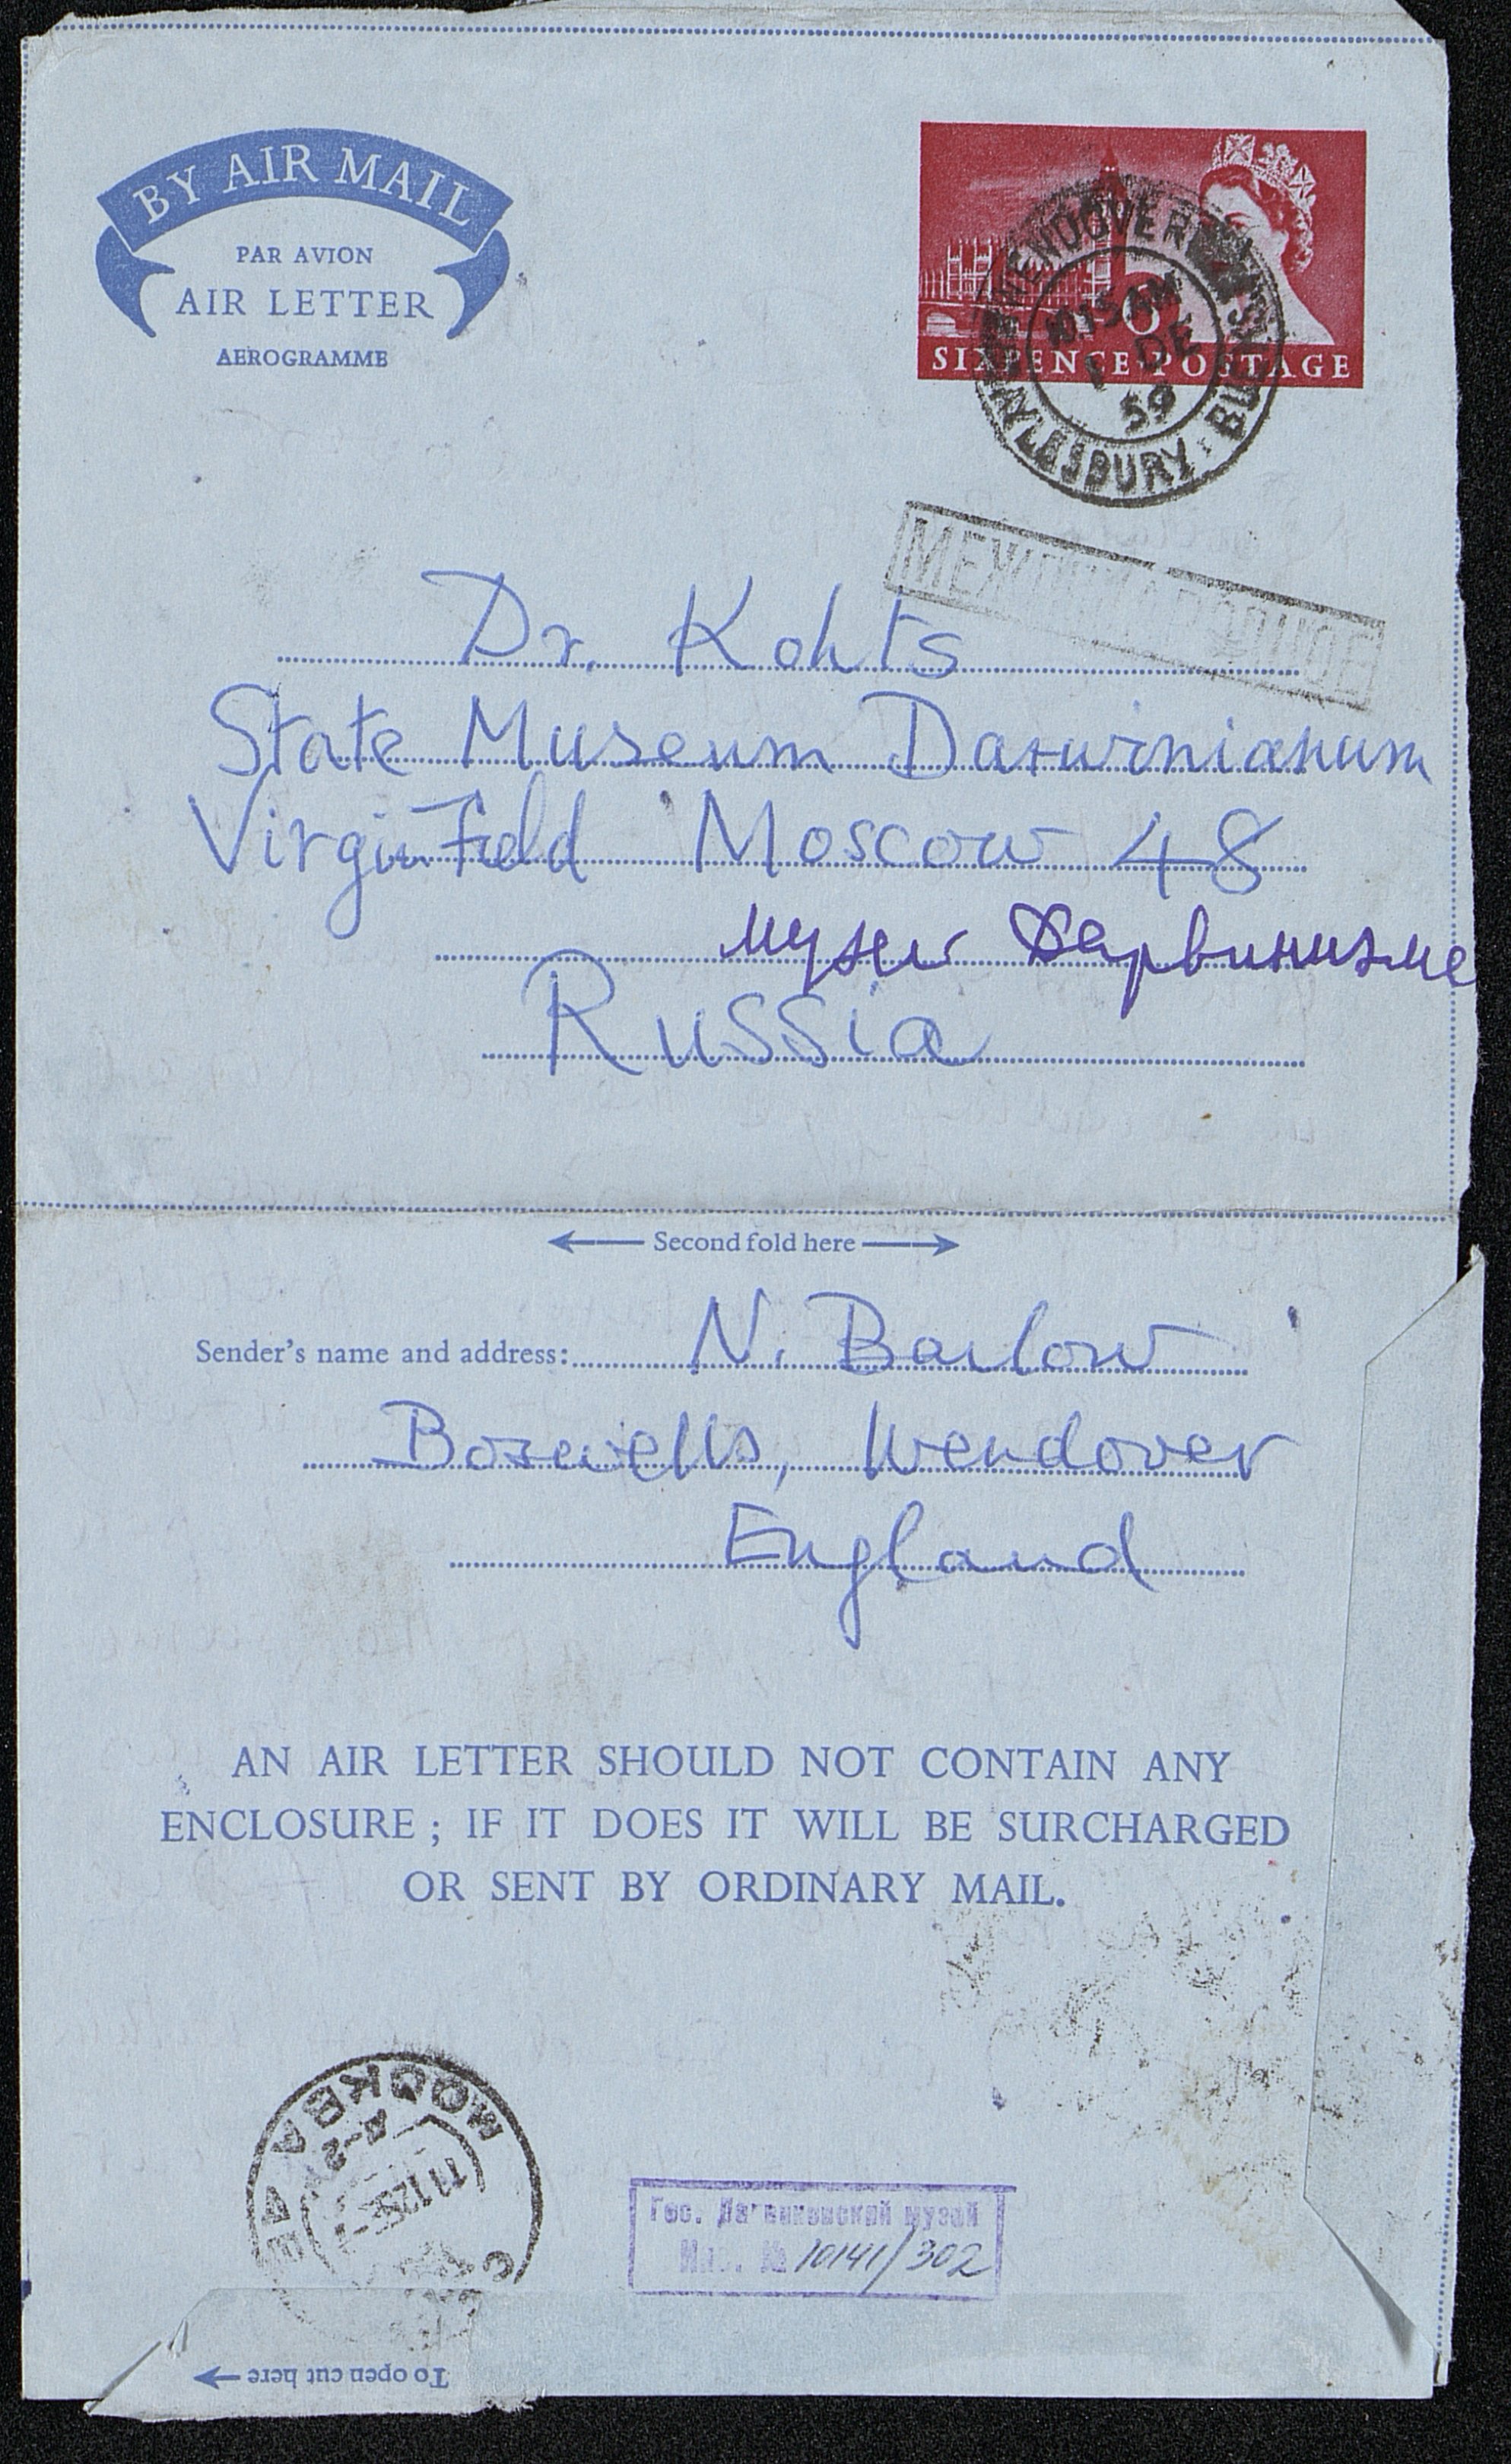 BY AIR MAIL
PAR AVION
AIR LETTER
AEROGRAMME
6D
SIXPENCE POSTAGE
WENDOVER
10.15 AM
1 DE
59
AYLESBURY · BUCKS
МЕЖДУНАРОДНОЕ
Dr. Kohts
State Museum Darwinianum
Virgin Field Moscow 48
музей Дарвинизма
Russia
Second fold here
Sender's name and address: N. Barlow
Boswells, Wendover
England
AN AIR LETTER SHOULD NOT CONTAIN ANY
ENCLOSURE ; IF IT DOES IT WILL BE SURCHARGED
OR SENT BY ORDINARY MAIL.
МОСКВА
Гос. Дарвиновский музей
Инв. № 10141/302
To open cut here